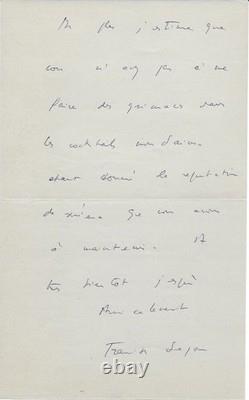 De plus j'estime que
vous n'avez pas à me
faire des grimaces dans
les cocktails mondains
étant donné la réputation
de sérieux que vous avez
à maintenir. A
très bientôt j'espère
Amicalement
Françoise Sagan
ebay